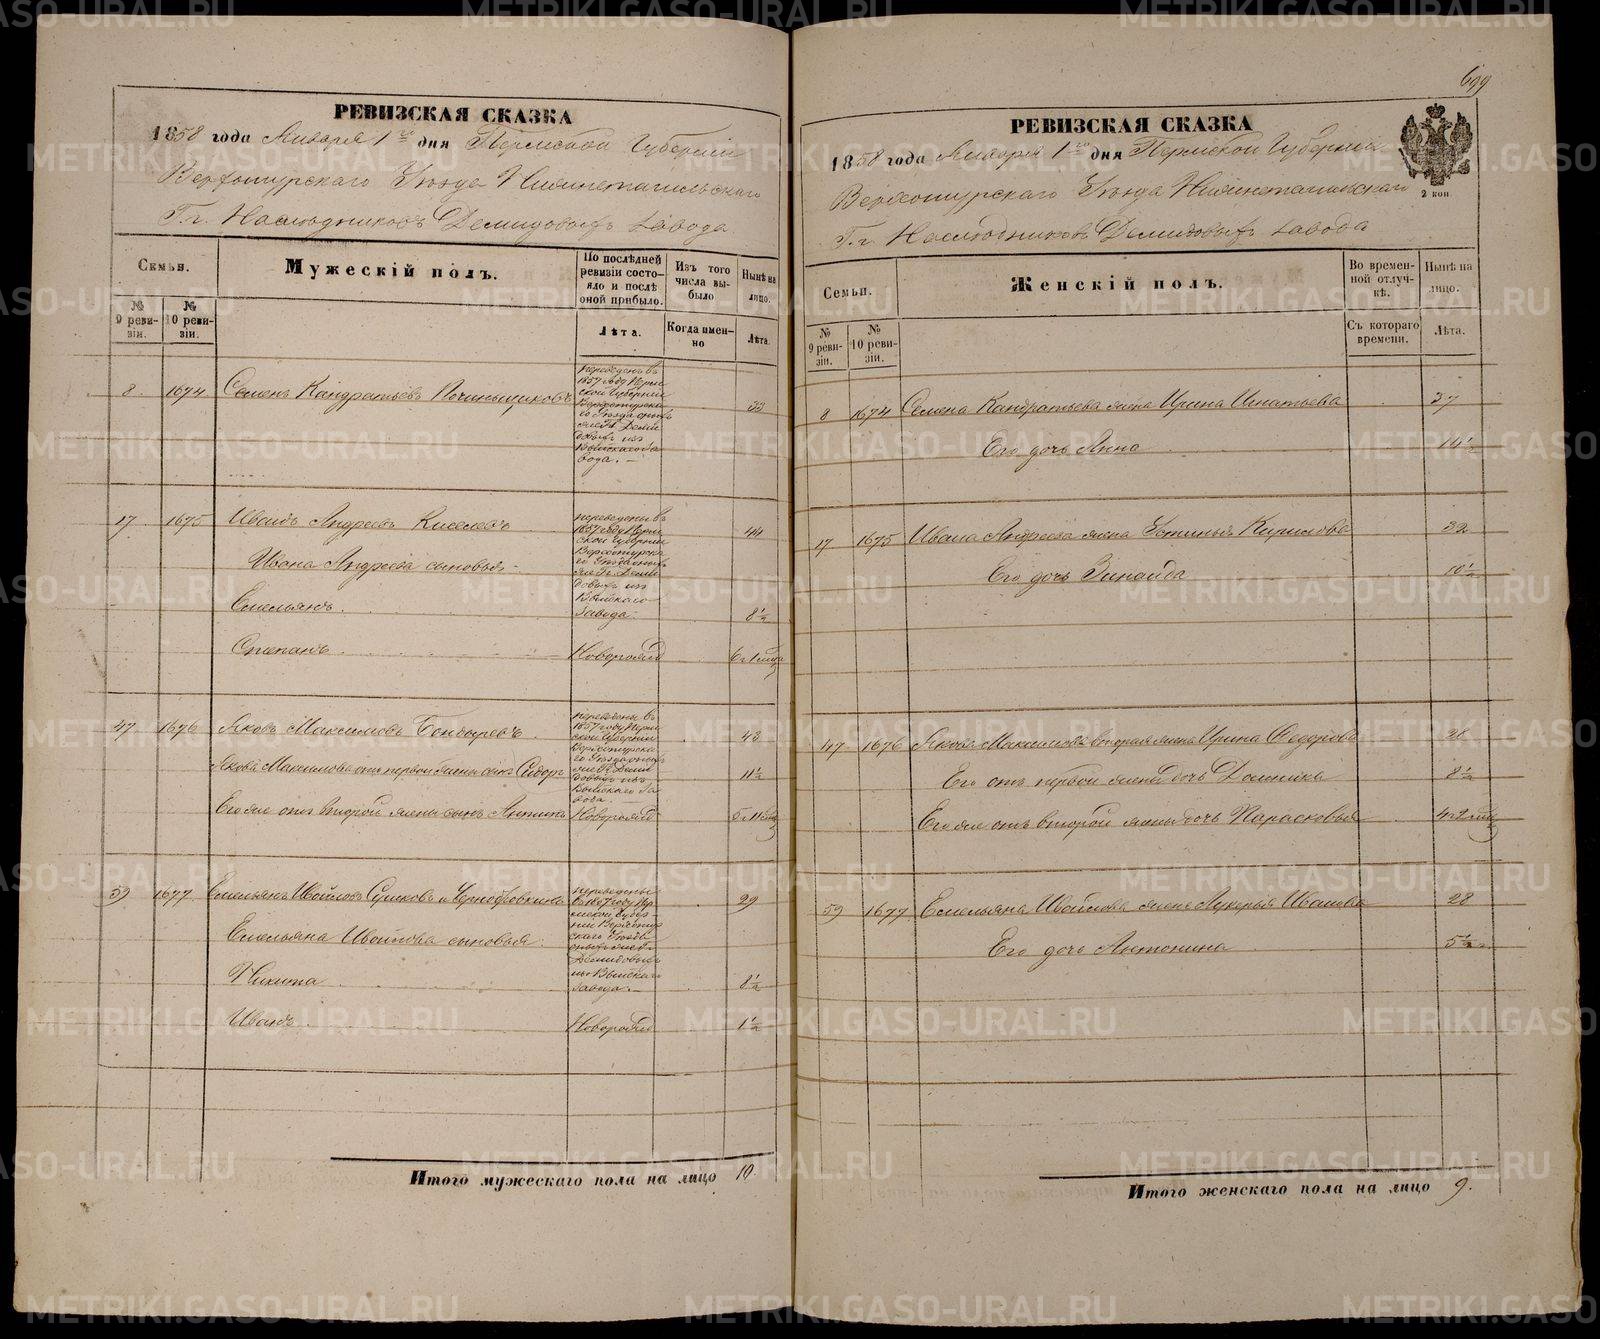 РЕВИЗСКАЯ СКАЗКА
1858 года Января 1го дня Пермской Губерніи
Верхотурскаго Уѣзда Нижнетагильскаго
Г.г. Наслѣдниковъ Демидовыхъ завода
Семьи.
Мужескій полъ.
По послѣдней ревизіи состояло и послѣ оной прибыло.
Изъ того числа выбыло
Нынѣ на лицо.
№ 9 ревизіи.
№ 10 ревизіи.
Лѣта.
Когда именно
Лѣта.
8. 1674 Семенъ Кандратьевъ 33
переведенъ въ
1857 году Перм
ской Губерніи
Верхотурска
го Уѣзда оныхъ
же Гг. Деми
довыхъ изъ
Выйскаго за
вода. —
17 1675 Иванъ Андреевъ Киселевъ 44
переведены въ
1857 году Перм
ской Губерніи
Верхотурска
го Уѣзда оныхъ
же Гг. Деми
довыхъ изъ
Выйскаго
завода.
Ивана Андреева сыновья
Емельянъ 8½
Степанъ Новорожд
47 1676 Яковъ Максимовъ 43
переведены въ
1857 году Перм
ской Губерніи
Верхотурска
го Уѣзда оныхъ
же Гг. Деми
довыхъ изъ
Выйскаго за
вода. —
Якова Максимова отъ первой жены сынъ Сидоръ 11½
Его же отъ второй жены сынъ Новорожд
59 1677 29
переведены
въ 1857 году Пер
мской Губер
ніи Верхотур
скаго Уѣзда
оныхъ же Гг.
Демидовыхъ
изъ Выйскаго
завода. —
Емельяна сыновья
Никита 8½
Иванъ Новорожд 1½
Итого мужескаго пола на лицо 10.
699
РЕВИЗСКАЯ СКАЗКА
2 коп
1858 года Января 1го дня Пермской Губерніи
Верхотурскаго Уѣзда Нижнетагильскаго
Г.г. Наслѣдниковъ Демидовыхъ завода
Семьи.
Женскій полъ.
Во временной отлучкѣ.
Нынѣ на лицо.
№ 9 ревизіи.
№ 10 ревизіи.
Съ котораго времени.
Лѣта.
8 1674 Семена Кандратьева жена Ирина Игнатьева 37
Его дочь Анна 14½
17 1675 Ивана Андреева жена Устинья Кирилова 32
Его дочь Зинаида 10½
47 1676 Якова Максимова вторая жена Ирина Федорова 28
Его отъ первой жены дочь Домника 8½
Его же отъ второй жены дочь Парасковья
59 1677 Емельяна жена Лукерья Иванова 28
Его дочь Антонина 5½
Итого женскаго пола на лицо 9.
METRIKI.GASO-URAL.RU